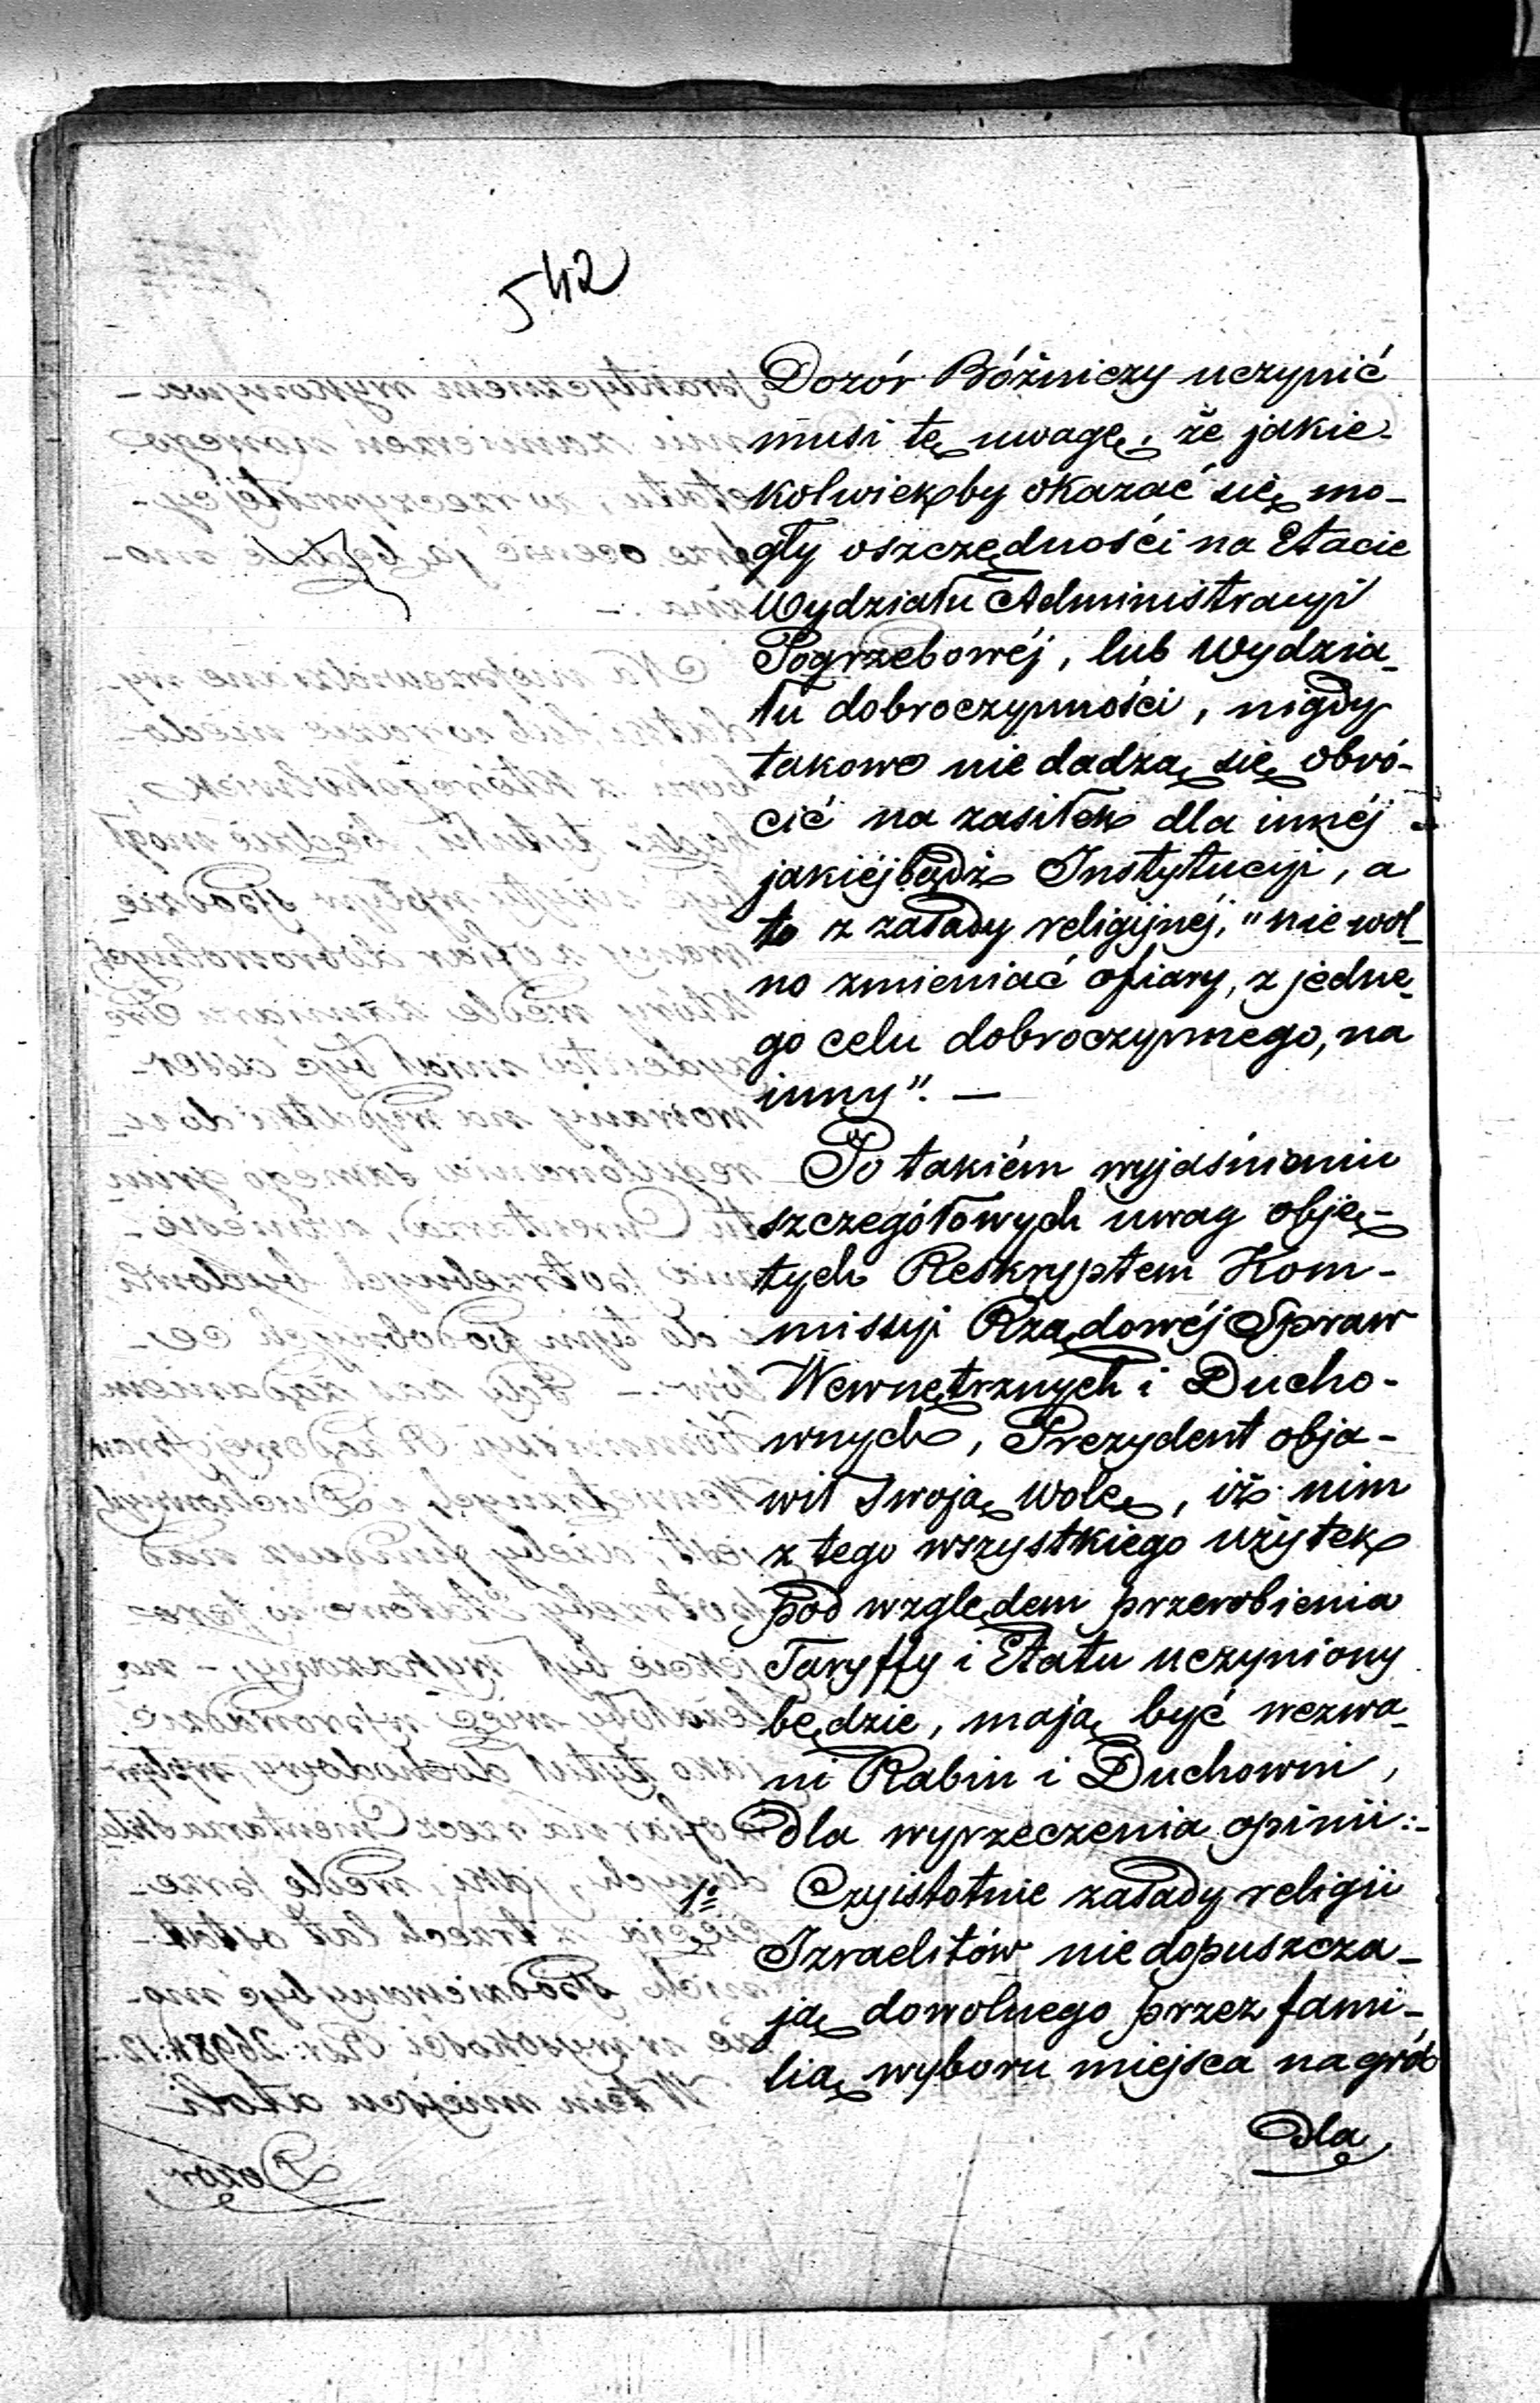 542
Dozór Bóżniczy uczynić
musi tę uwagę, że jakie-
kolwiekby okazać się mo-
gły oszczędności na Etacie
Wydziału Administracyi
Pogrzebowéj, lub Wydzia-
łu dobroczynności, nigdy
takowe nie dadzą się obró-
cić na zasiłek dla innéj
jakiéjbądź Instytucyi, a
to z zasady religijnéj, "nie wol-
no zmieniać ofiary, z jedne-
go celu dobroczynnego, na
inny". —
Po takiém wyjaśnieniu
szczegółowych uwag obję-
tych Reskryptem Kom-
missyi Rządowéj Spraw
Wewnętrznych i Ducho-
wnych, Prezydent obja-
wił swoją wolę, iż nim
z tego wszystkiego użytek
pod względem przerobienia
Taryffy i Etatu uczyniony
będzie, mają być wezwa-
ni Rabin i Duchowni,
dla wyrzeczenia opinii:-
1o Czyistotnie zasady religii
Izraelitów nie dopuszcza-
ją dowolnego przez fami-
lią wyboru miejsca na grób
dla